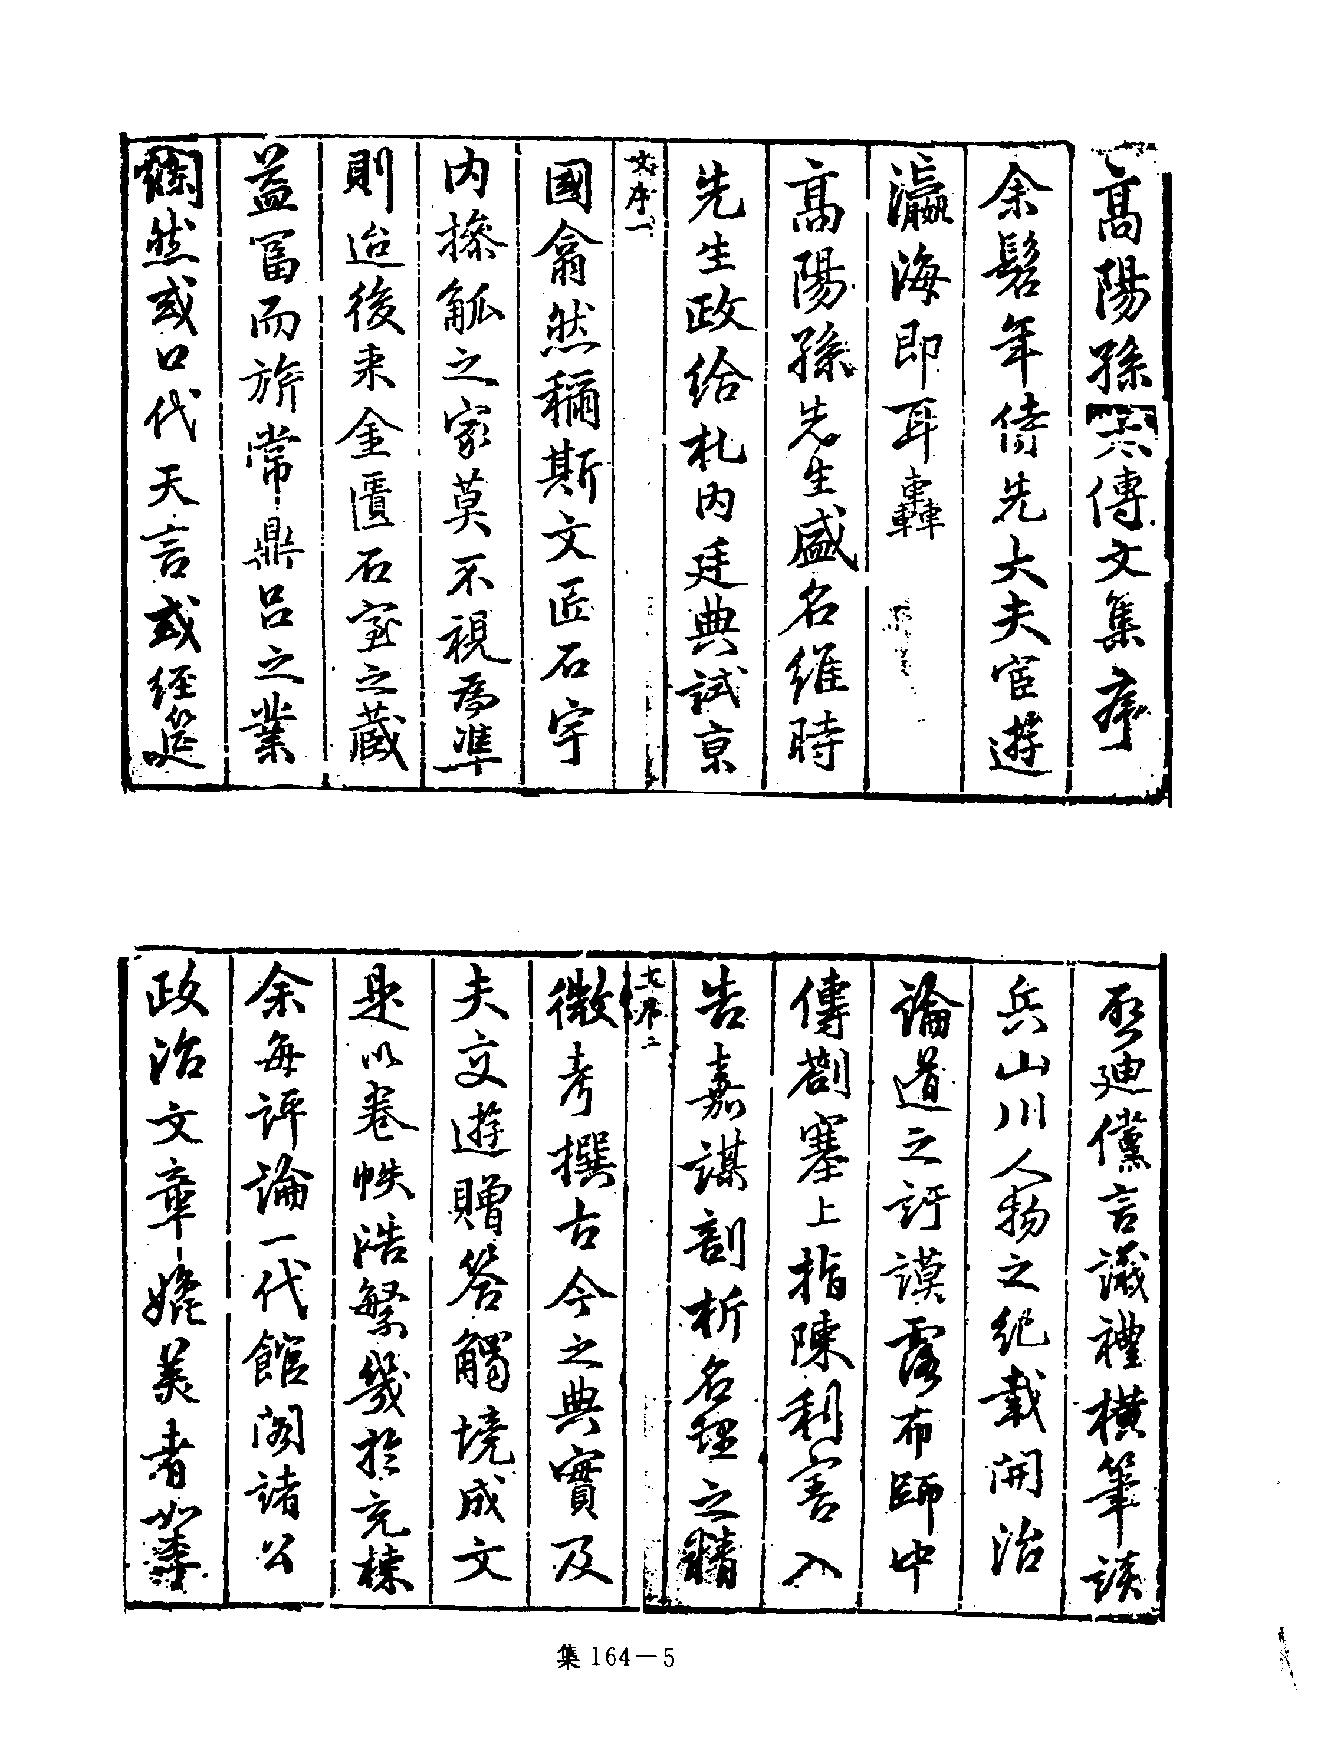 高陽孫太傅文集序
余髫年侍先大夫宦遊
瀛海即耳轟
高陽孫先生盛名維時
先生政給札內廷典試京
文序一
國翕然稱斯文匠石宇
內操觚之家莫不視為準
則迨後来金匱石室之藏
益富而旂常鼎呂之業
爛然或口代天言或經筵
啓廸儻言議禮橫筆談
兵山川人物之紀載開治
論道之訏謨露布師中
傳劄塞上指陳利害入
告嘉謀剖析名理之精
文序二
微考撰古今之典實及
夫交遊贈答觸境成文
是以卷帙浩繁幾於充棟
余每評論一代館閣諸公
政治文章媲美者如
集 164－5